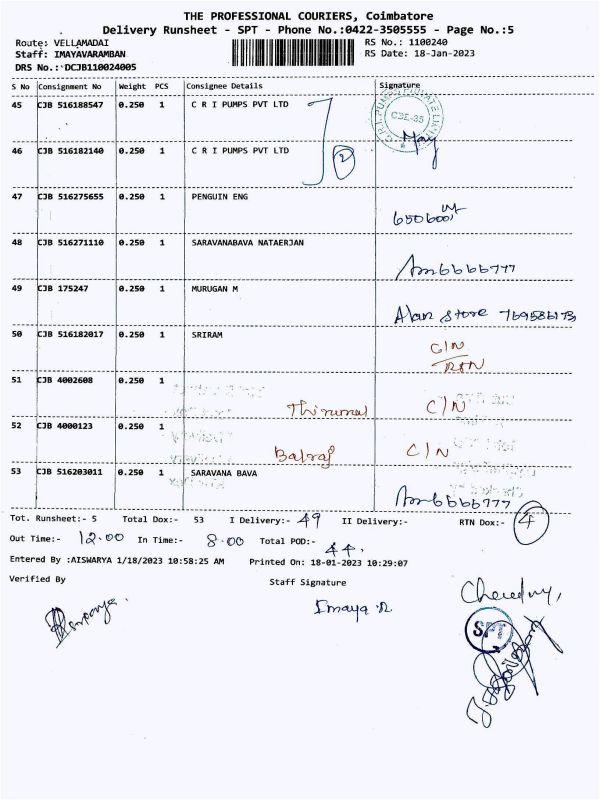 THE PROFESSIONAL COURIERS, Coimbatore
Delivery Runsheet - SPT - Phone No.:0422-3505555 - Page No.:5
Route: VELLAMADAI RS No.: 1100240
Staff: IMAYAVARAMBAN RS Date: 18-Jan-2023
DRS No.: DCJB110024005
S No Consignment No Weight PCS Consignee Details Signature
45 CJB 516188547 0.250 1 C R I PUMPS PVT LTD
CBE-35
46 CJB 516182140 0.250 1 C R I PUMPS PVT LTD 2
47 CJB 516275655 0.250 1 PENGUIN ENG
48 CJB 516271110 0.250 1 SARAVANABAVA NATAERJAN
49 CJB 175247 0.250 1 MURUGAN M
Alan store
50 CJB 516182017 0.250 1 SRIRAM
C/N
RTN
51 CJB 4002608 0.250 1
C/N
52 CJB 4000123 0.250 1
Balraj C/N
53 CJB 516203011 0.250 1 SARAVANA BAVA
Tot. Runsheet:- 5 Total Dox:- 53 I Delivery:- 49 II Delivery:- RTN Dox:- 4
Out Time:- 12.00 In Time:- 8.00 Total POD:- 44.
Entered By :AISWARYA 1/18/2023 10:58:25 AM Printed On: 18-01-2023 10:29:07
Verified By Staff Signature
Imaya.R
SPT